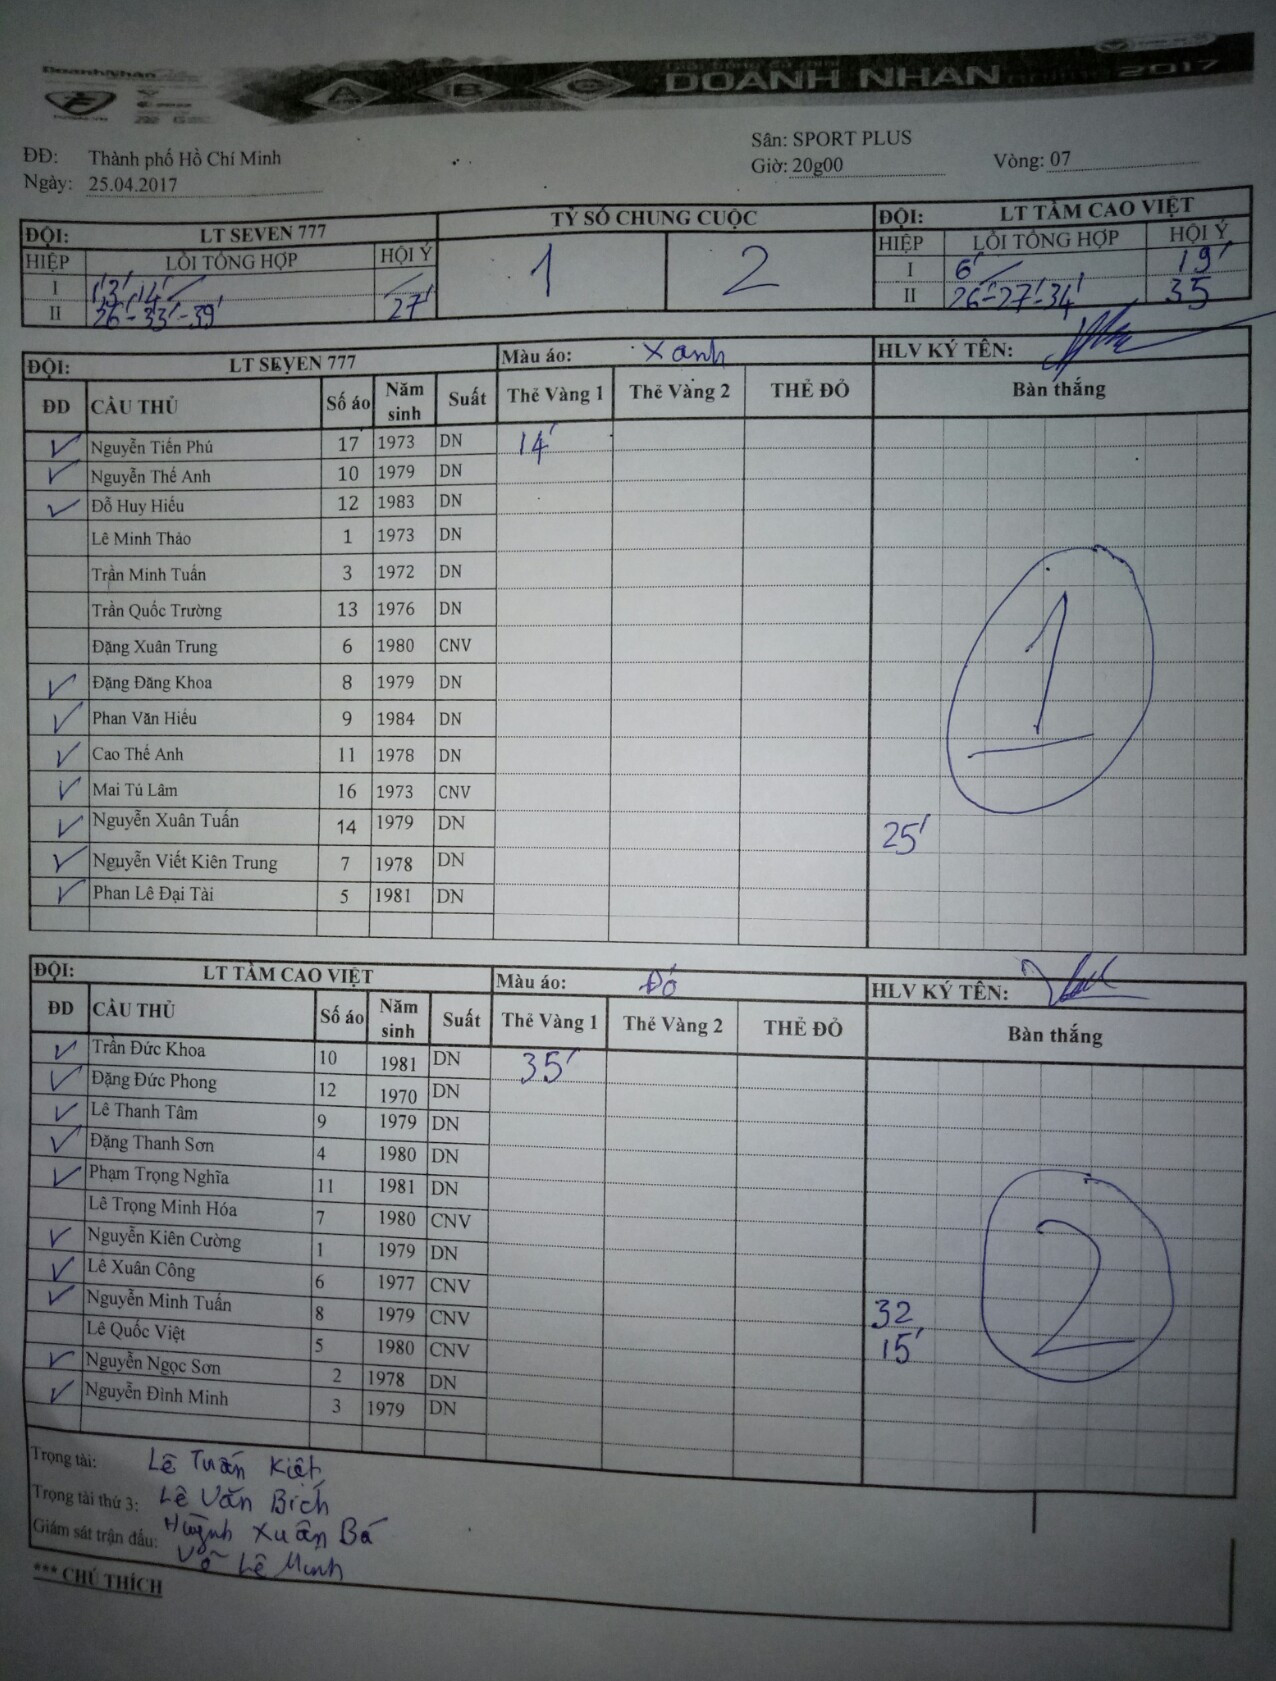 DoanhNhân
A B C DOANH NHAN 2017
ĐĐ: Thành phố Hồ Chí Minh
Ngày: 25.04.2017
Sân: SPORT PLUS
Giờ: 20g00 Vòng: 07
ĐỘI: LT SEVEN 777 TỶ SỐ CHUNG CUỘC ĐỘI: LT TẦM CAO VIỆT
HIỆP LỖI TỔNG HỢP HỘI Ý 1 2 HIỆP LỖI TỔNG HỢP HỘI Ý
I 13' 14' I 6' 19'
II 26'-33'-39' 27' II 26'-27'-34' 35
ĐỘI: LT SEVEN 777 Màu áo: Xanh HLV KÝ TÊN:
ĐD CẦU THỦ Số áo Năm sinh Suất Thẻ Vàng 1 Thẻ Vàng 2 THẺ ĐỎ Bàn thắng
Nguyễn Tiến Phú 17 1973 DN 14'
Nguyễn Thế Anh 10 1979 DN
Đỗ Huy Hiếu 12 1983 DN
Lê Minh Thảo 1 1973 DN
Trần Minh Tuấn 3 1972 DN
Trần Quốc Trường 13 1976 DN
Đặng Xuân Trung 6 1980 CNV
Đặng Đăng Khoa 8 1979 DN 1
Phan Văn Hiếu 9 1984 DN
Cao Thế Anh 11 1978 DN
Mai Tú Lâm 16 1973 CNV
Nguyễn Xuân Tuấn 14 1979 DN 25'
Nguyễn Viết Kiên Trung 7 1978 DN
Phan Lê Đại Tài 5 1981 DN
ĐỘI: LT TẦM CAO VIỆT Màu áo: Đỏ HLV KÝ TÊN:
ĐD CẦU THỦ Số áo Năm sinh Suất Thẻ Vàng 1 Thẻ Vàng 2 THẺ ĐỎ Bàn thắng
Trần Đức Khoa 10 1981 DN 35'
Đặng Đức Phong 12 1970 DN
Lê Thanh Tâm 9 1979 DN
Đặng Thanh Sơn 4 1980 DN
Phạm Trọng Nghĩa 11 1981 DN
Lê Trọng Minh Hóa 7 1980 CNV
Nguyễn Kiên Cường 1 1979 DN 2
Lê Xuân Công 6 1977 CNV
Nguyễn Minh Tuấn 8 1979 CNV 32
Lê Quốc Việt 5 1980 CNV 15'
Nguyễn Ngọc Sơn 2 1978 DN
Nguyễn Đình Minh 3 1979 DN
Trọng tài: Lê Tuấn Kiệt
Trọng tài thứ 3: Lê Văn Bích
Giám sát trận đấu: Huỳnh Xuân Bá
Võ Lê Minh
*** CHÚ THÍCH